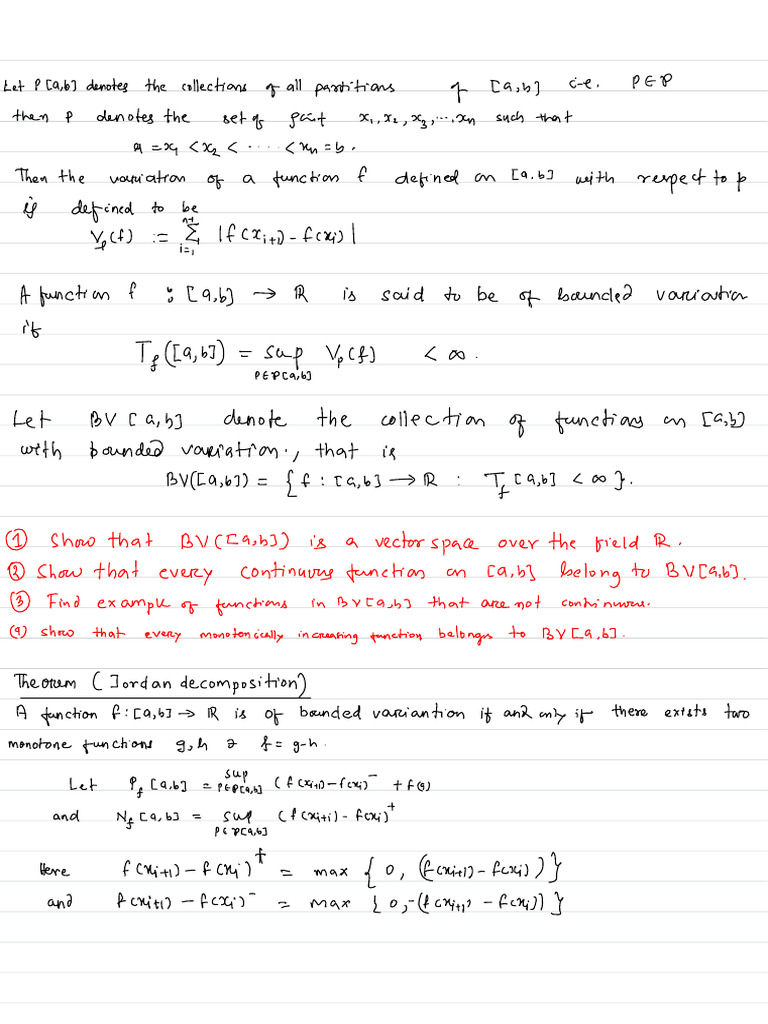 Let P[a,b] denotes the collections of all partitions of [a,b] i.e. P∈𝒫
then P denotes the set of point x₁, x₂, x₃, ..., xₙ such that
a = x₁ < x₂ < ····· < xₙ = b.
Then the variation of a function f defined on [a,b] with respect to p
is defined to be
Vₚ(f) := Σᵢ₌₁ⁿ⁻¹ |f(xᵢ₊₁) - f(xᵢ)|
A function f : [a,b] → ℝ is said to be of bounded variation
if
T_f([a,b]) = sup_{P∈𝒫[a,b]} Vₚ(f) < ∞.
Let BV [a,b] denote the collection of functions on [a,b]
with bounded variation., that is
BV([a,b]) = { f : [a,b] → ℝ : T_f [a,b] < ∞ }.
① Show that BV([a,b]) is a vector space over the field ℝ.
② Show that every continuous function on [a,b] belong to BV[a,b].
③ Find example of functions in BV[a,b] that are not continuous.
(4) show that every monotonically increasing function belongs to BV[a,b].
Theorem (Jordan decomposition)
A function f:[a,b] → ℝ is of bounded variantion if and only if there exists two
monotone functions g,h ∋ f = g-h.
Let P_f [a,b] = sup_{P∈𝒫[a,b]} (f(xᵢ₊₁) - f(xᵢ)⁻ + f(a)
and N_f [a,b] = sup_{P∈𝒫[a,b]} (f(xᵢ₊₁) - f(xᵢ)⁺
Here f(xᵢ₊₁) - f(xᵢ)⁺ = max { 0, (f(xᵢ₊₁) - f(xᵢ)) }
and f(xᵢ₊₁) - f(xᵢ)⁻ = max { 0, -(f(xᵢ₊₁) - f(xᵢ)) }